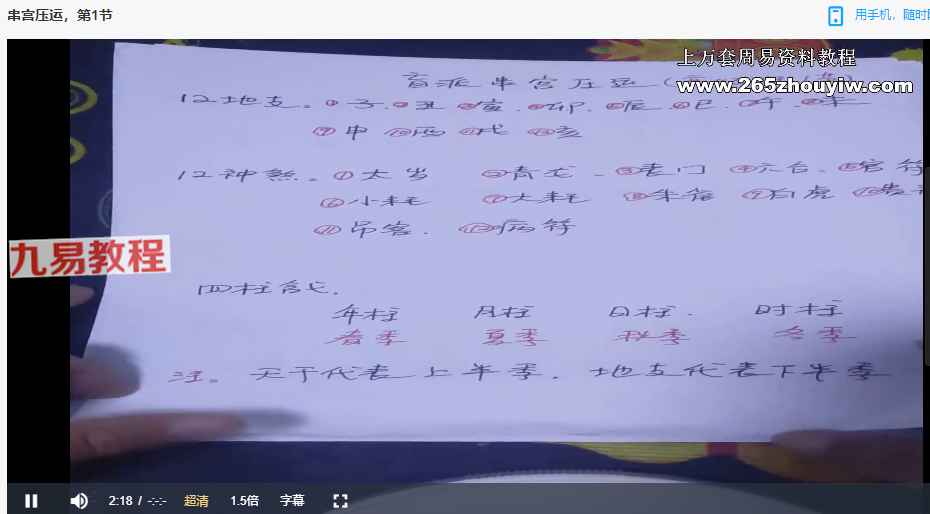 串宫压运，第1节
用手机，随时
上万套周易资料教程
www.265zhouyiw.com
盲派串宫压运(
12地支。①子.②丑 ③寅.④卯.⑤辰.⑥巳.⑦午.⑧未
⑨申 ⑩酉 ⑪戌 ⑫亥
12神煞。①太岁 ②青龙.③丧门 ④六合.⑤官符
⑥小耗 ⑦大耗 ⑧朱雀 ⑨白虎 ⑩贵
⑪吊客. ⑫病符
九易教程
四柱含义.
年柱 月柱 日柱. 时柱
春季 夏季 秋季 冬季
注。天干代表上半季.地支代表下半季
2:18 / -:-:- 超清 1.5倍 字幕